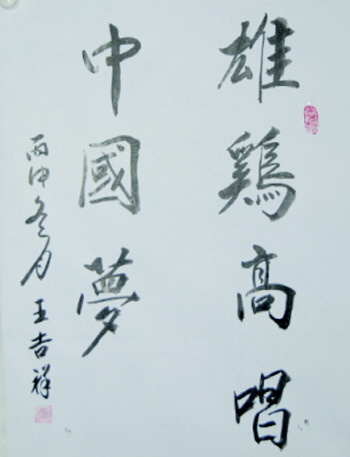 雄鷄高唱
中國夢
丙申冬月 王吉祥